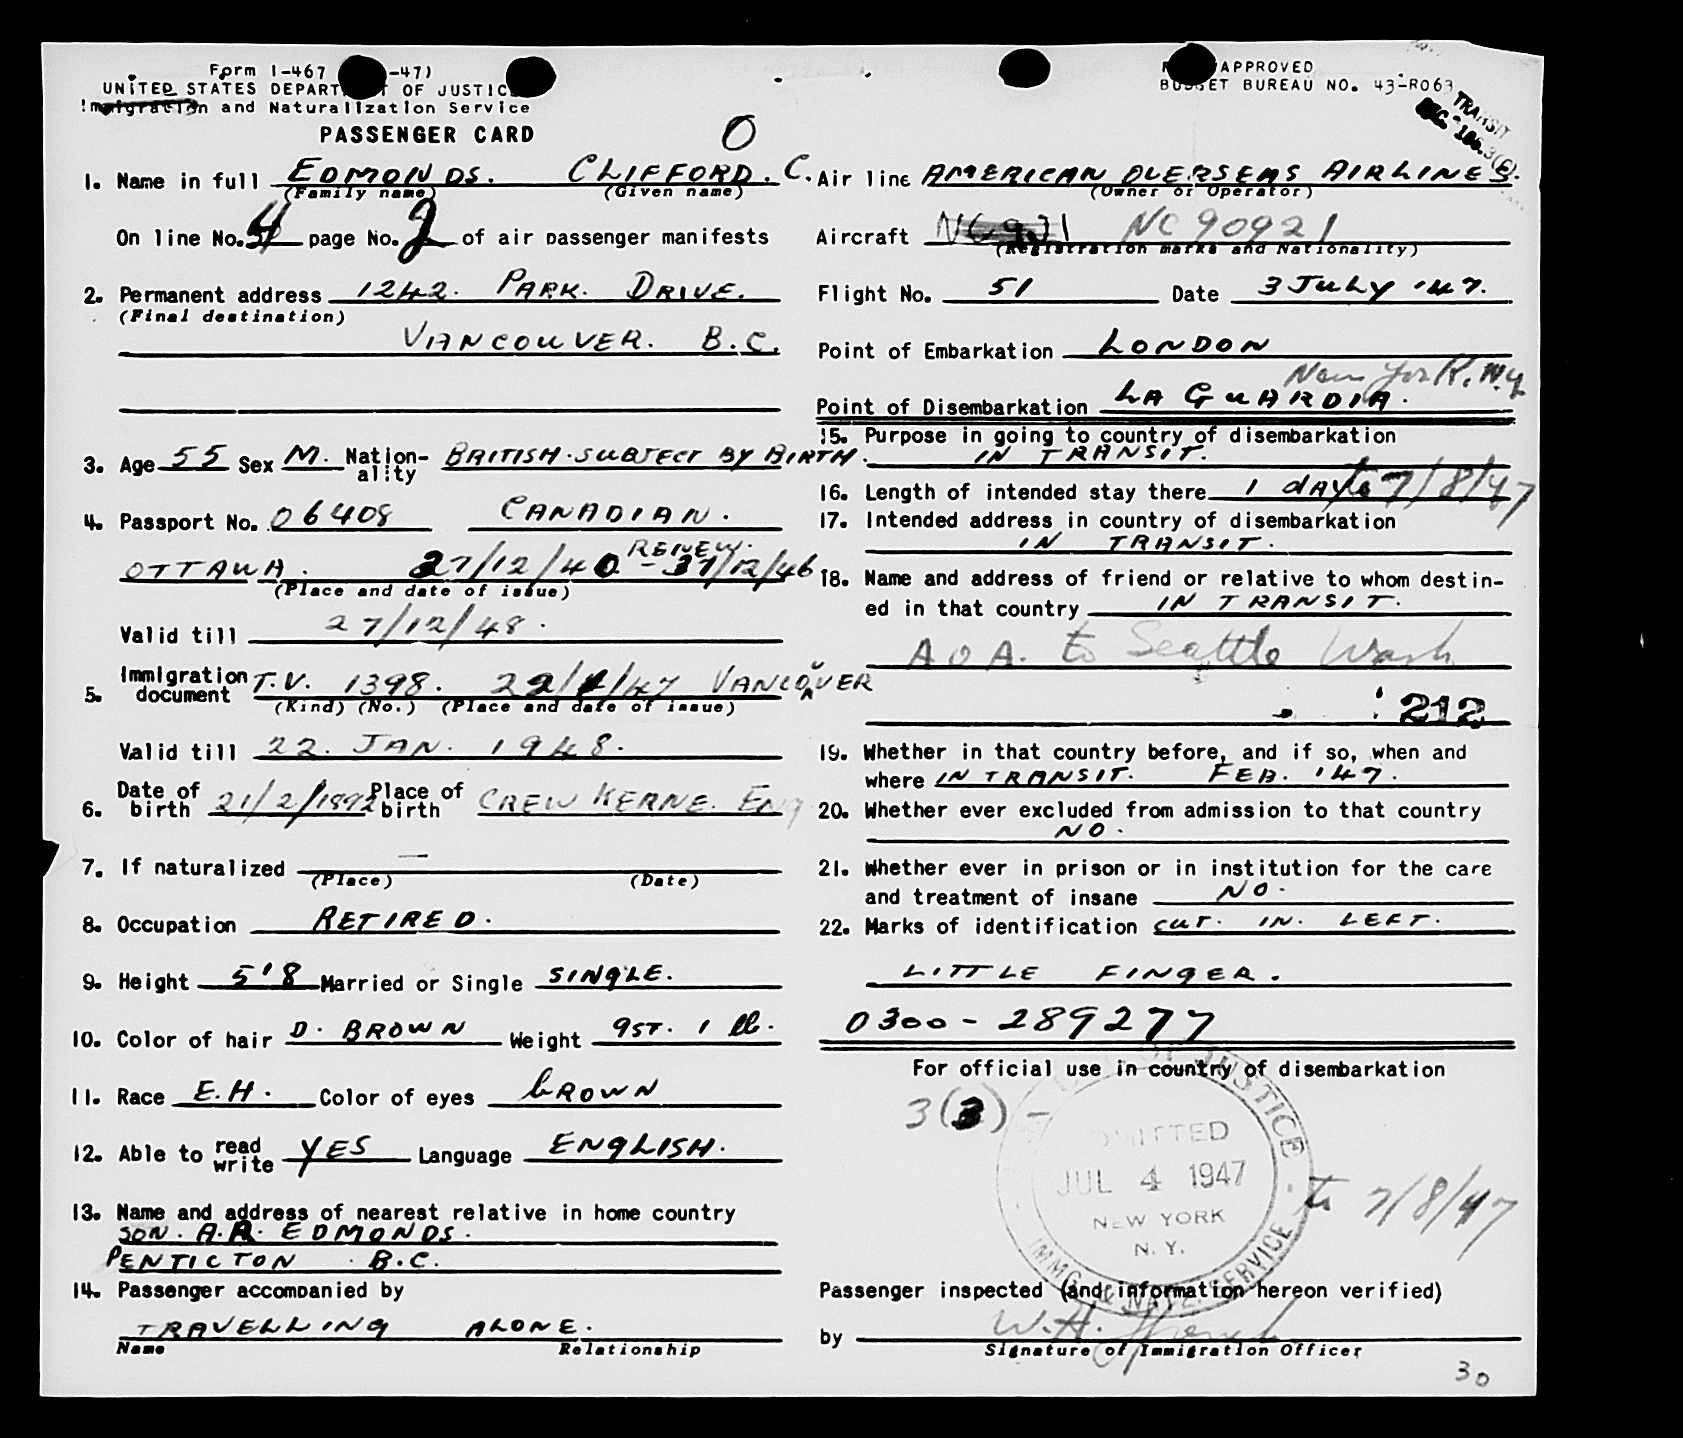 Form I-467 -47)
UNITED STATES DEPART OF JUSTIC
Immigration and Naturalization Service
PASSENGER CARD
O
APPROVED
BUDGET BUREAU NO. 43-R063
TRANSIT
1. Name in full EDMONDS. CLIFFORD. C.
(Family name) (Given name)
On line No. 4 page No. 2 of air passenger manifests
2. Permanent address 1242. PARK. DRIVE.
(Final destination)
VANCOUVER. B.C.
3. Age 55 Sex M. Nation-ality BRITISH. SUBJECT BY BIRTH.
4. Passport No. 06408 CANADIAN.
RENEW.
OTTAWA. 27/12/40 - 31/12/46
(Place and date of issue)
Valid till 27/12/48.
5. Immigration document T.V. 1398. 22/1/47 VANCOUVER
(Kind) (No.) (Place and date of issue)
Valid till 22. JAN. 1948.
6. Date of birth 21/2/1892 Place of birth CREWKERNE. ENG
7. If naturalized —
(Place) (Date)
8. Occupation RETIRED.
9. Height 5'8 Married or Single SINGLE.
10. Color of hair D. BROWN Weight 9ST. 1 lb.
11. Race E.H. Color of eyes BROWN
12. Able to read write YES Language ENGLISH.
13. Name and address of nearest relative in home country
SON. A.R. EDMONDS.
PENTICTON B.C.
14. Passenger accompanied by
TRAVELLING ALONE.
Name Relationship
Air line AMERICAN OVERSEAS AIRLINES.
(Owner or Operator)
Aircraft NC90921
(Registration marks and Nationality)
Flight No. 51 Date 3 JULY '47.
Point of Embarkation LONDON
New York, N.Y.
Point of Disembarkation LA GUARDIA.
15. Purpose in going to country of disembarkation
IN TRANSIT.
16. Length of intended stay there 1 day to 7/8/47
17. Intended address in country of disembarkation
IN TRANSIT.
18. Name and address of friend or relative to whom destin-
ed in that country IN TRANSIT.
AOA. to Seattle Wash
212
19. Whether in that country before, and if so, when and
where IN TRANSIT. FEB. '47.
20. Whether ever excluded from admission to that country
NO.
21. Whether ever in prison or in institution for the care
and treatment of insane NO.
22. Marks of identification CUT. IN. LEFT.
LITTLE FINGER.
0300-289277
For official use in country of disembarkation
3(3) -
JUSTICE
ADMITTED
JUL 4 1947
NEW YORK
N. Y.
IMMG. & NATZ. SERVICE
to 7/8/47
Passenger inspected (and information hereon verified)
by W.H.
Signature of Immigration Officer
30